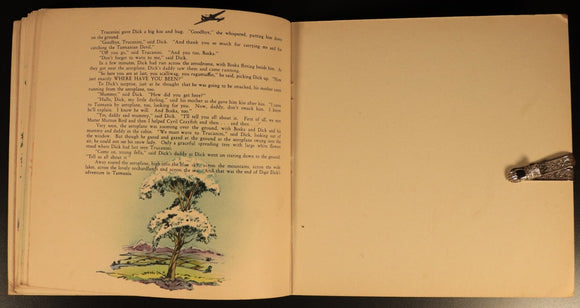 Trucanini gave Dick a big kiss and hug. "Goodbye," she whispered, putting him down
on the ground.
"Goodbye, Trucanini," said Dick. "And thank you so much for carrying me and for
catching the Tasmanian Devil."
"Off you go," said Trucanini. "And you too, Boska."
"Don't forget to wave to me," said Dick.
In a few moments, Dick had run across the aerodrome, with Boska fleeing beside him. As
they got near the aeroplane, Dick's daddy saw them and came running.
"So here you are at last, you scallywag, you ragamuffin," he said, picking Dick up. "Now
just exactly WHERE HAVE YOU BEEN?"
To Dick's surprise, just as he thought that he was going to be smacked, his mother came
running from the aeroplane, too.
"Mummy," said Dick. "How did you get here?"
"Hullo, Dick, my little darling," said his mother as she gave him kiss after him. "I came
to Tasmania by aeroplane, too, looking for you. Now, daddy, don't smack him. I know
he'll explain. I know he will. And Boska, too."
"Yes, daddy and mummy," said Dick. "I'll tell you all about it. First of all, we met
Mister Mutton Bird and then I helped Cyril Crayfish and then . . . and then . . . ."
Very soon, the aeroplane was zooming over the ground, with Boska and Dick and his
mummy and daddy in the cabin. "We must wave to Trucanini," said Dick, looking out of
the window. But though he gazed and gazed at the ground as the aeroplane swung into the
air, he could not see his snow lady. Only a graceful spreading tree with large white flowers
stood where Dick had last seen Trucanini.
"Come on, young fella," said Dick's daddy as Dick went on staring down to the ground.
"Tell us all about it."
Away roared the aeroplane, high into the blue sky, across the mountains, across the wide
lakes, across the lovely orchardlands and across the seas. And that was the end of Digit Dick's
adventure in Tasmania.